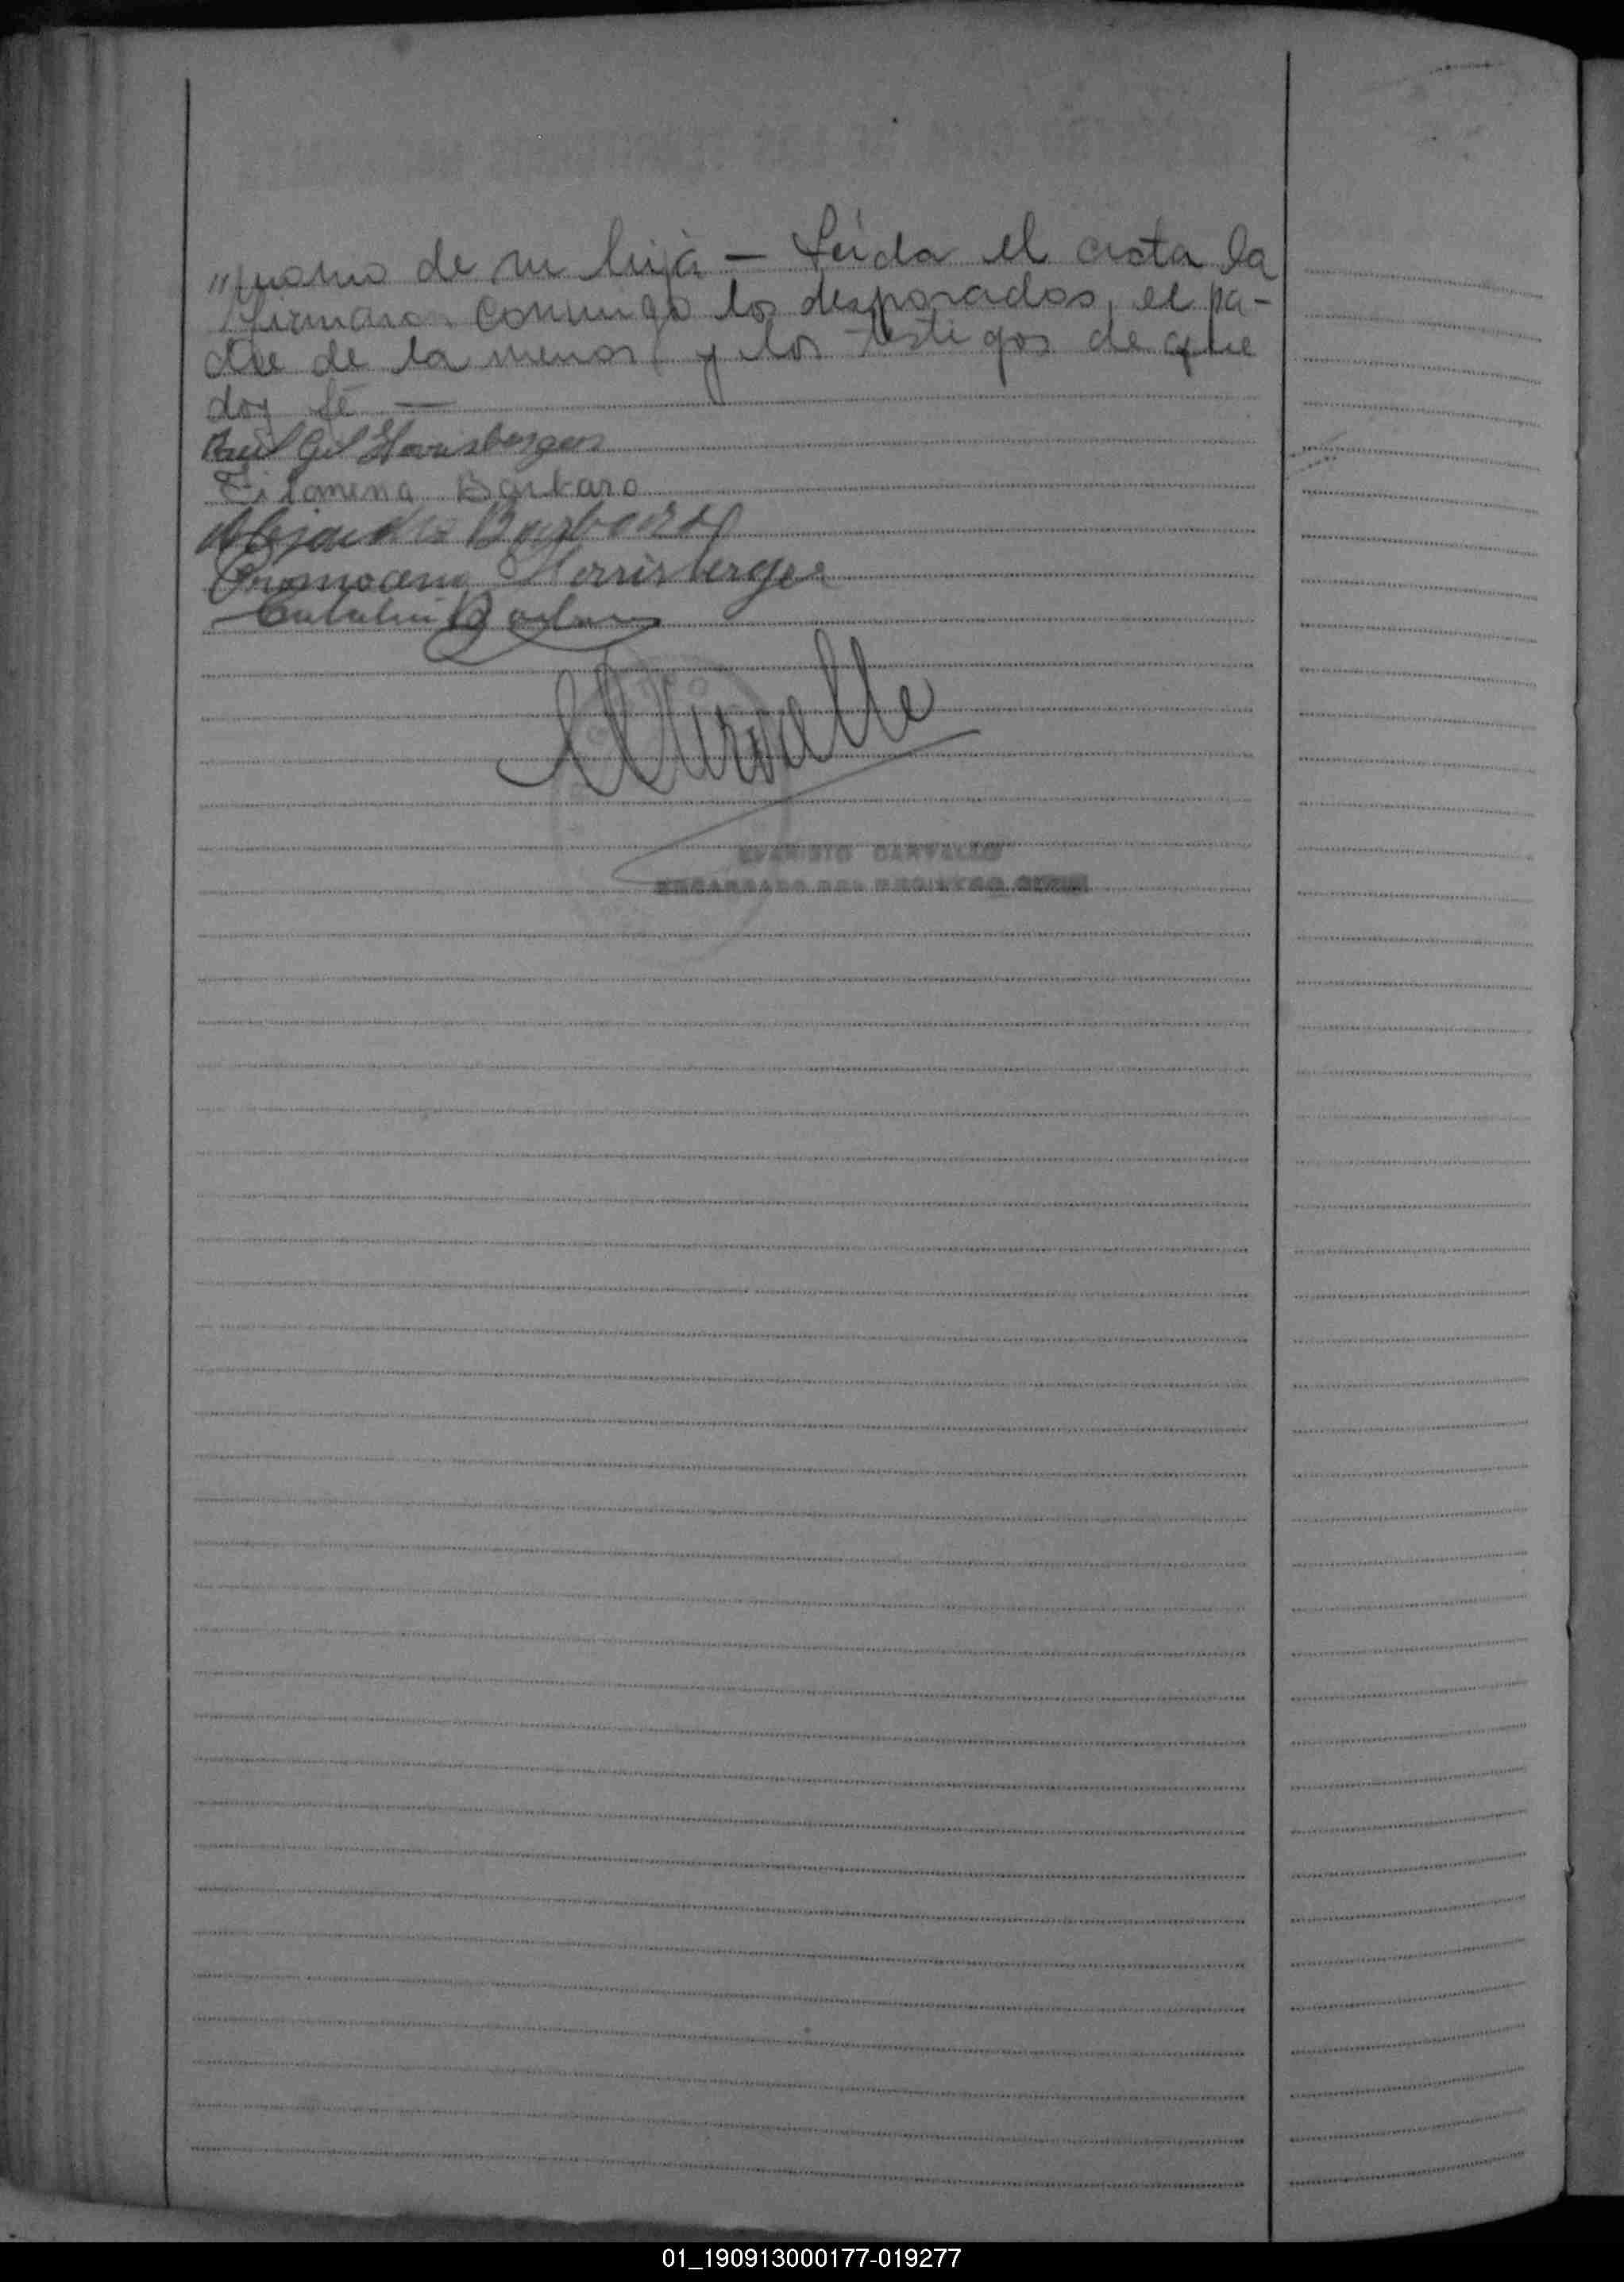 monio de su hija — Leida el acta la
firmaron conmigo los desposados, el pa-
dre de la menor y los testigos de que
doy fé —
Raul Gil Harrisberger
Filomena Barbaro
Alejandro Barbaro
Herrisberger
EVARISTO CARVALLO
ENCARGADO DEL REGISTRO CIVIL
01_190913000177-019277